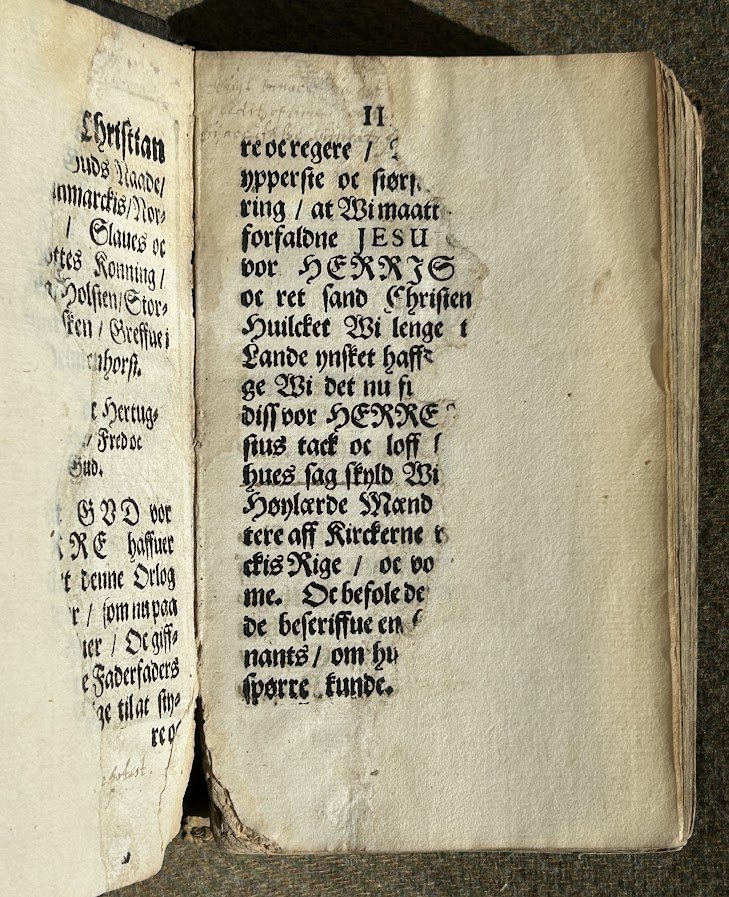 Christian
Guds Naade/
nmarckis/Nor-
/ Slaues oc
ottes Konning/
Holsten/Stor-
sken/Greffue i
menhorst.
Hertug-
/ Fred oc
Gud.
GVD vor
RRE haffuer
denne Orlog
/ som nu paa
/ Oc giff-
Faderfaders
ge til at sty-
re oc
II
re oc regere /
ypperste oc størr
ring / at Wi maatt
forfaldne JESU
vor HERRJS
oc ret sand Christen
Huilcket Wi lenge
Lande ynsket haff
ge Wi det nu
diss vor HERRE
stus tack oc loff
hues sag skyld Wi
Høylærde Mænd
tere aff Kirckerne
ckis Rige / oc vo
me. Oc befole de
de bescriffue en
nants/ om hu
spørre kunde.